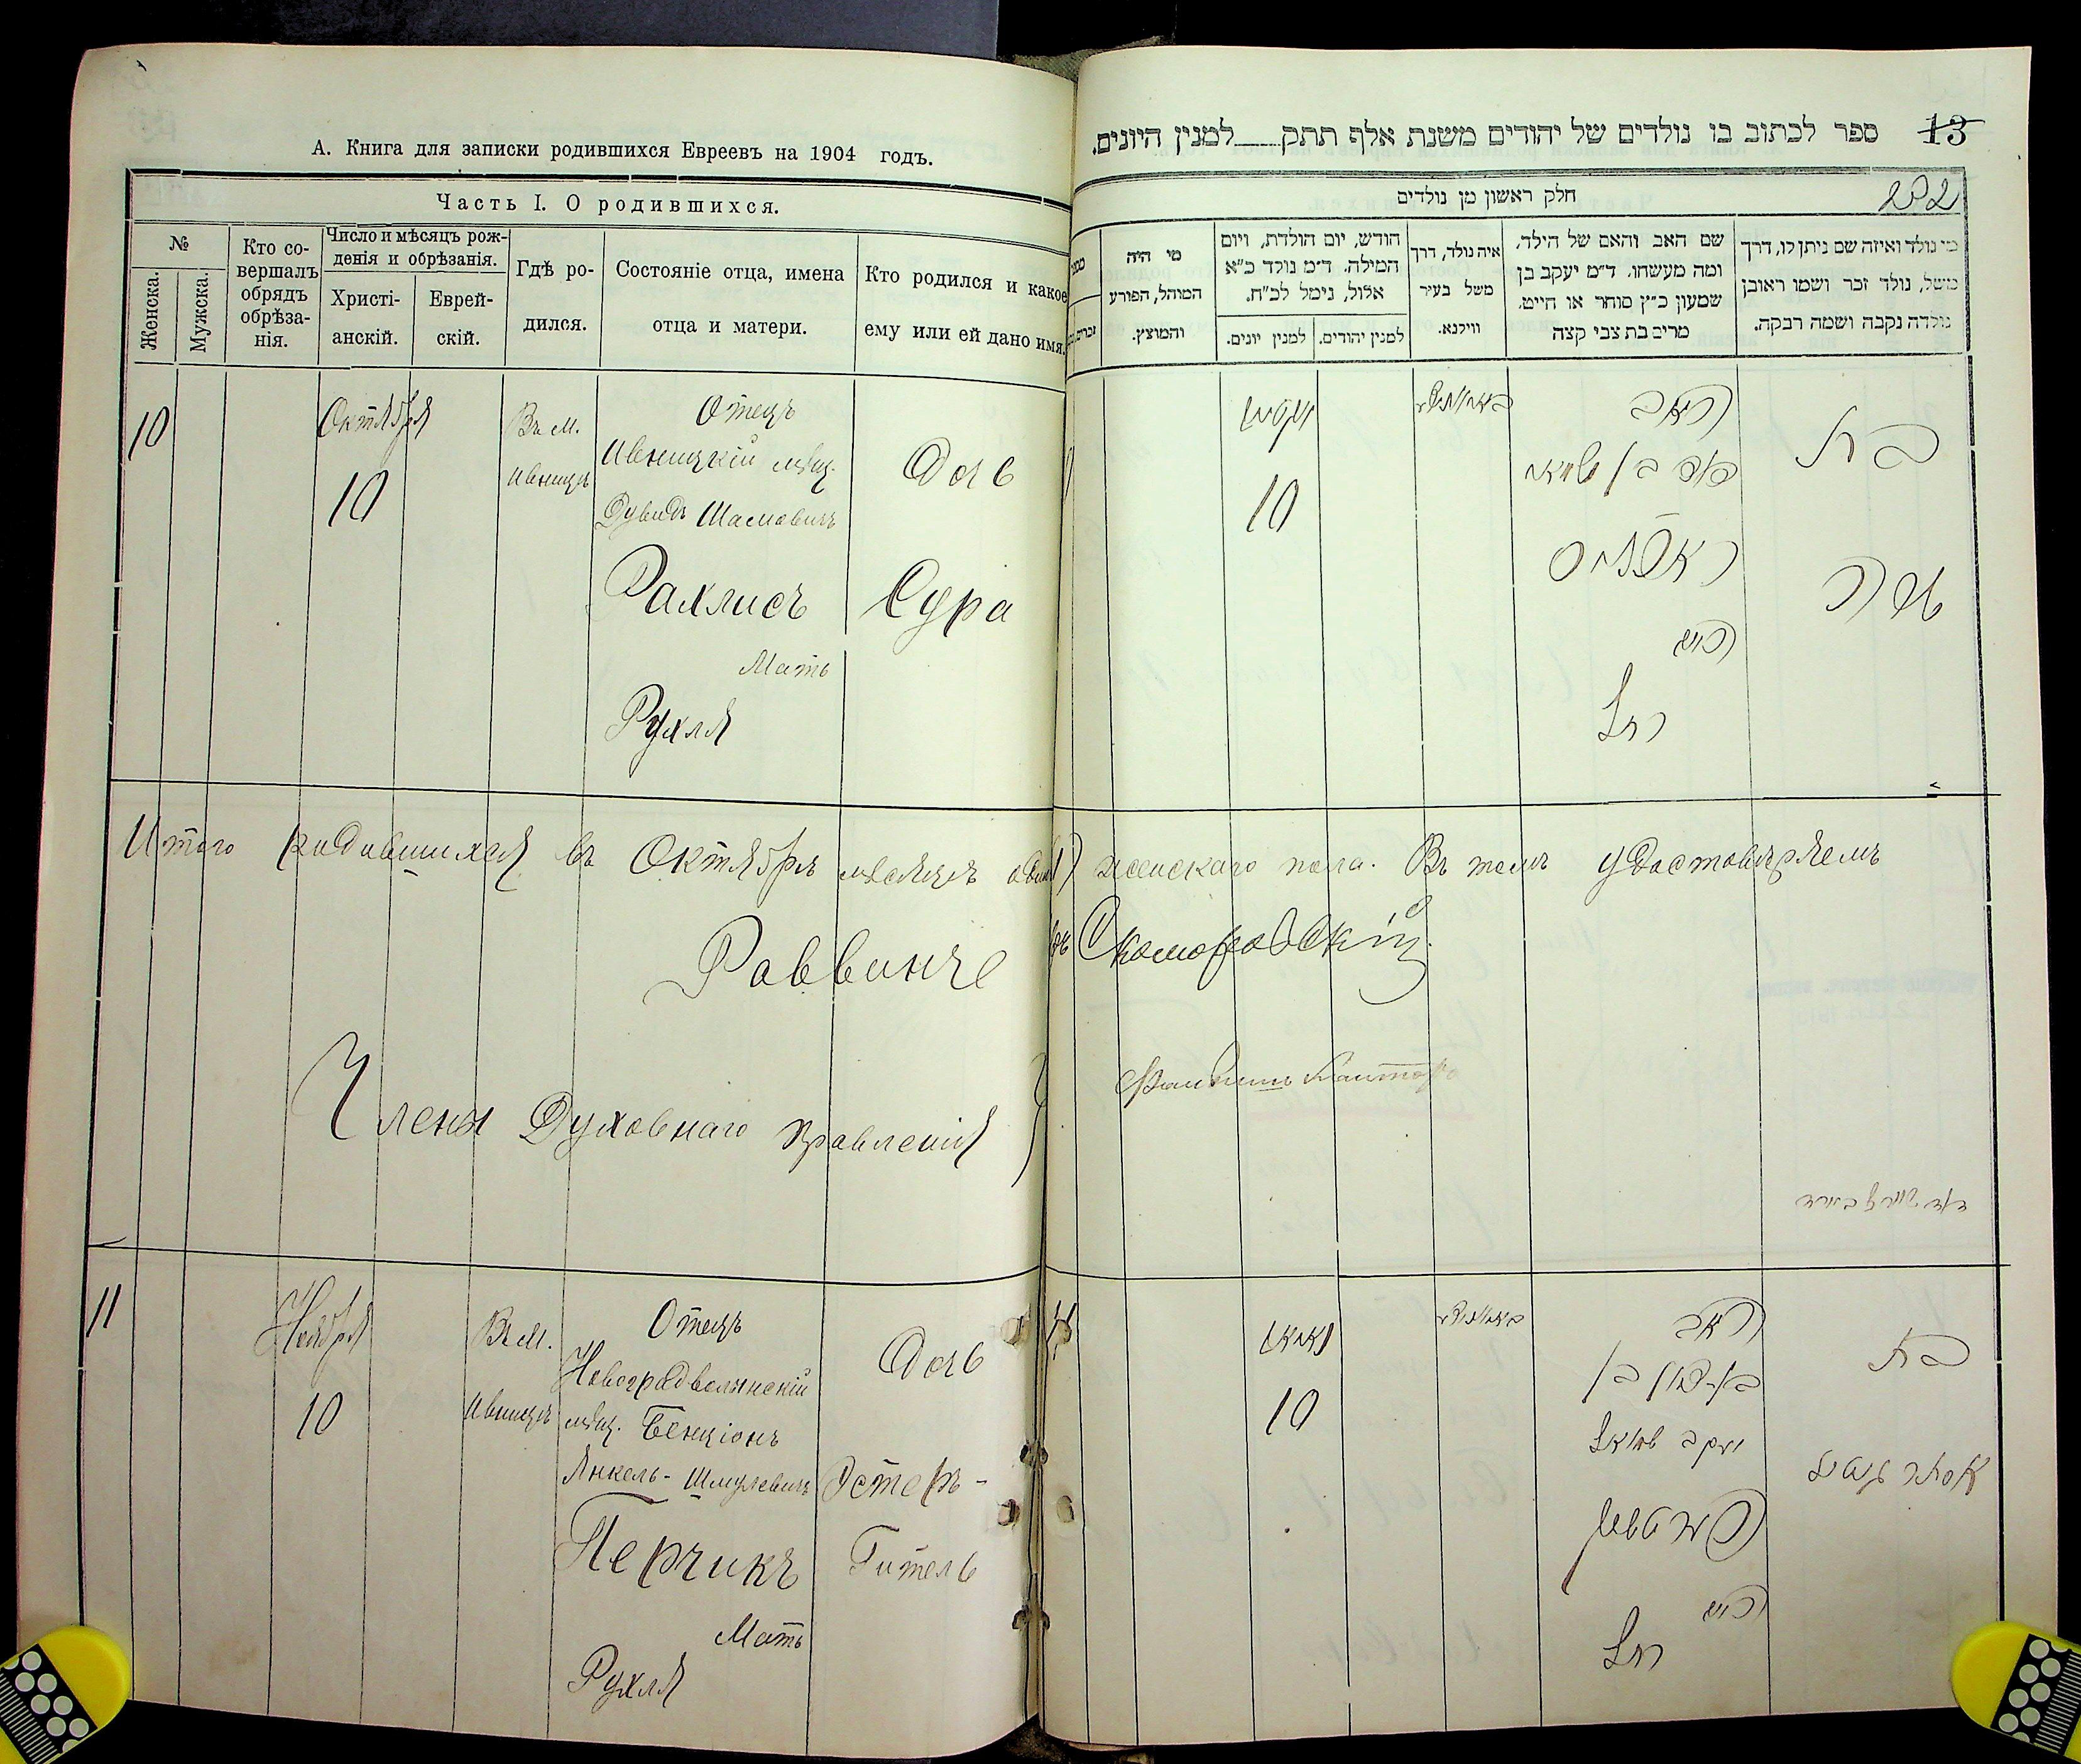 А. Книга для записки родившихся Евреевъ на 1904 годъ.
Часть I. О родившихся.
№
Женска.
Мужска.
Кто со-
вершалъ
обрядъ
обрѣза-
нія.
Число и мѣсяцъ рож-
денія и обрѣзанія.
Христі-
анскій.
Еврей-
скій.
Гдѣ ро-
дился.
Состояніе отца, имена
отца и матери.
Кто родился и какое
ему или ей дано имя.
10
Октября
10
Въ м.
Ивницѣ
Отецъ
Ивницкій мѣщ.
Дувидъ Шамовичъ
Рахлисъ
Мать
Рухля
Дочь
Сура
Итого родившихся въ Октябрѣ мѣсяцѣ
Раввинъ
Члены Духовнаго Правленія
11
Ноября
10
Въ м.
Ивницѣ
Отецъ
Новоградволынскій
мѣщ. Бенціонъ
Янкель-Шмулевичъ
Перчикъ
Мать
Рухля
Дочь
Эстеръ-
Гитель
13 ספר לכתוב בו נולדים של יהודים משנת אלף תתק למנין היונים.
חלק ראשון מן נולדים
202
מי נולד ואיזה שם ניתן לו, דרך
משל, נולד זכר ושמו ראובן
נולדה נקבה ושמה רבקה.
שם האב והאם של הילד,
ומה מעשהו. ד״מ יעקב בן
שמעון כ״ץ סוחר או חייט.
מרים בת צבי קצה
איה נולד, דרך
משל בעיר
ווילנא.
חודש, יום הולדת, ויום
המילה. ד״מ נולד כ״א
אלול, נימל לכ״ח.
למנין יהודים.
למנין יונים.
מי היה
המוהל, הפורע
והמוצץ.
בת
שרה
האב
דוד בן
ראכליס
האם
רחל
10
женскаго пола. Въ томъ удостовѣряемъ
Скоморовскій
בת
אסתר גיטל
האב
בן ציון בן
יעקב שמואל
פערטשיק
האם
רחל
10